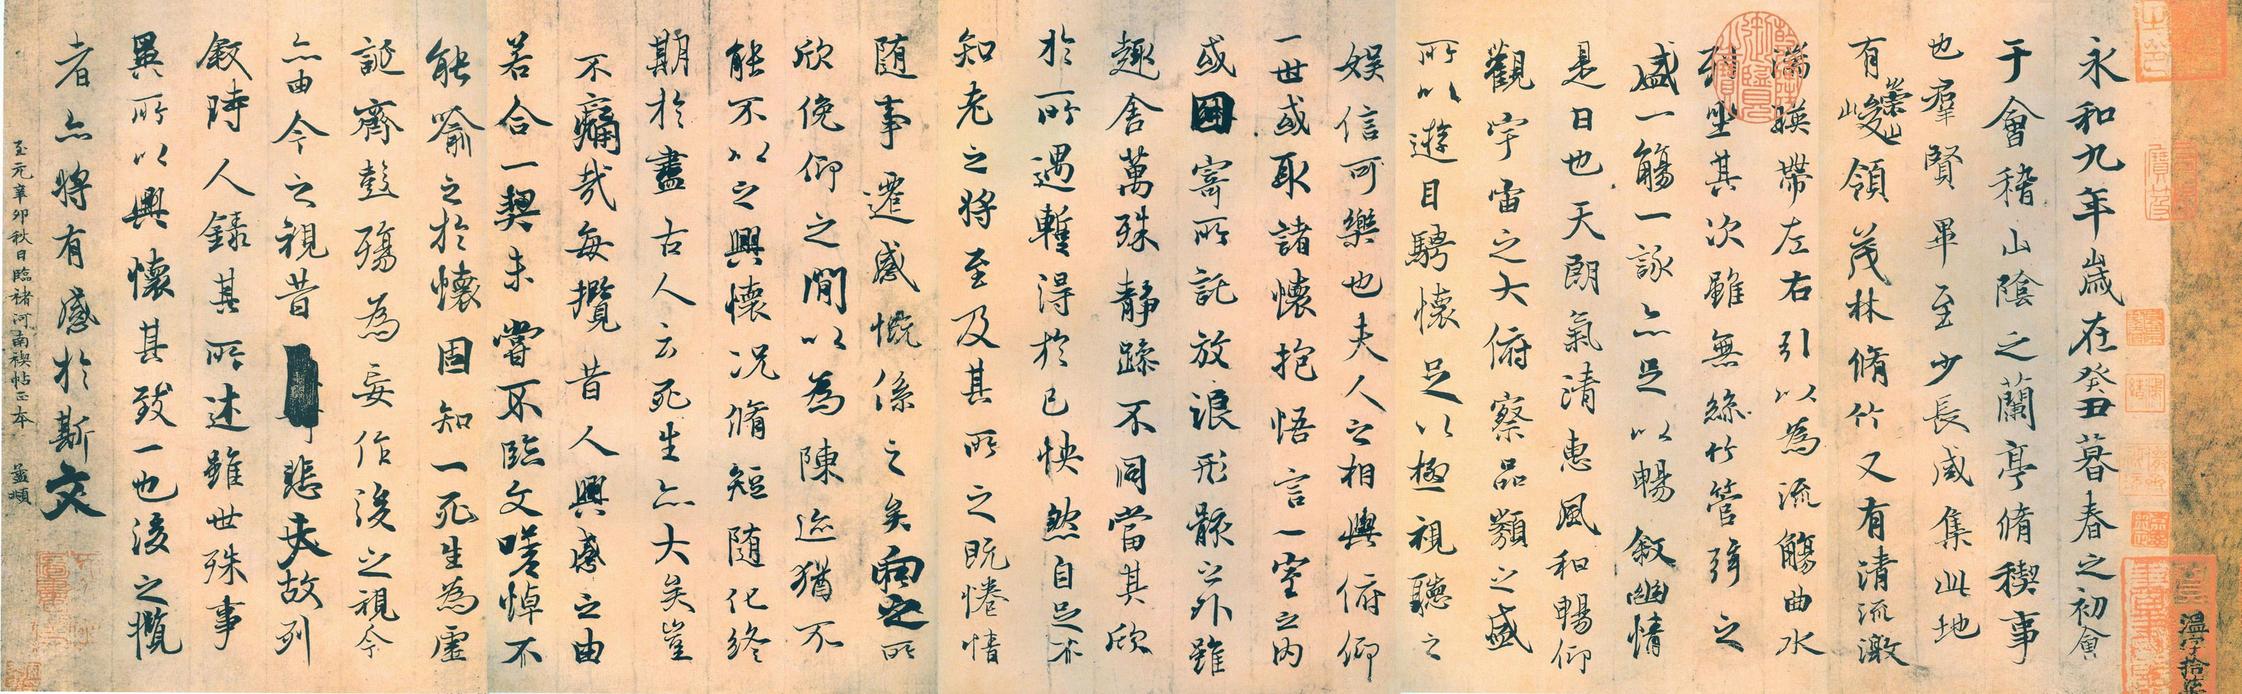 永和九年歲在癸丑暮春之初會
于會稽山陰之蘭亭脩稧事
也羣賢畢至少長咸集此地
有崇山峻領茂林脩竹又有清流激
湍暎帶左右引以為流觴曲水
列坐其次雖無絲竹管弦之
盛一觴一詠亦足以暢敘幽情
是日也天朗氣清惠風和暢仰
觀宇宙之大俯察品類之盛
所以遊目騁懷足以極視聽之
娛信可樂也夫人之相與俯仰
一世或取諸懷抱悟言一室之內
或因寄所託放浪形骸之外雖
趣舍萬殊靜躁不同當其欣
於所遇暫得於己怏然自足不
知老之將至及其所之既惓情
隨事遷感慨係之矣向之所
欣俛仰之閒以為陳迹猶不
能不以之興懷況脩短隨化終
期於盡古人云死生亦大矣豈
不痛哉每攬昔人興感之由
若合一契未嘗不臨文嗟悼不
能喻之於懷固知一死生為虛
誕齊彭殤為妄作後之視今
亦由今之視昔悲夫故列
敘時人錄其所述雖世殊事
異所以興懷其致一也後之攬
者亦將有感於斯文
至元辛卯秋日臨褚河南禊帖正本 孟頫